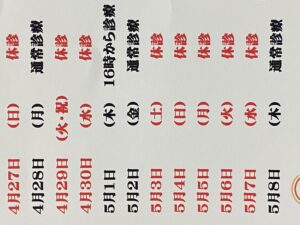 4月27日 (日) 休診
4月28日 (月) 通常診療
4月29日 (火・祝) 休診
4月30日 (水) 休診
5月1日 (木) 16時から診療
5月2日 (金) 通常診療
5月3日 (土) 休診
5月4日 (日) 休診
5月5日 (月) 休診
5月6日 (火) 休診
5月7日 (水) 休診
5月8日 (木) 通常診療